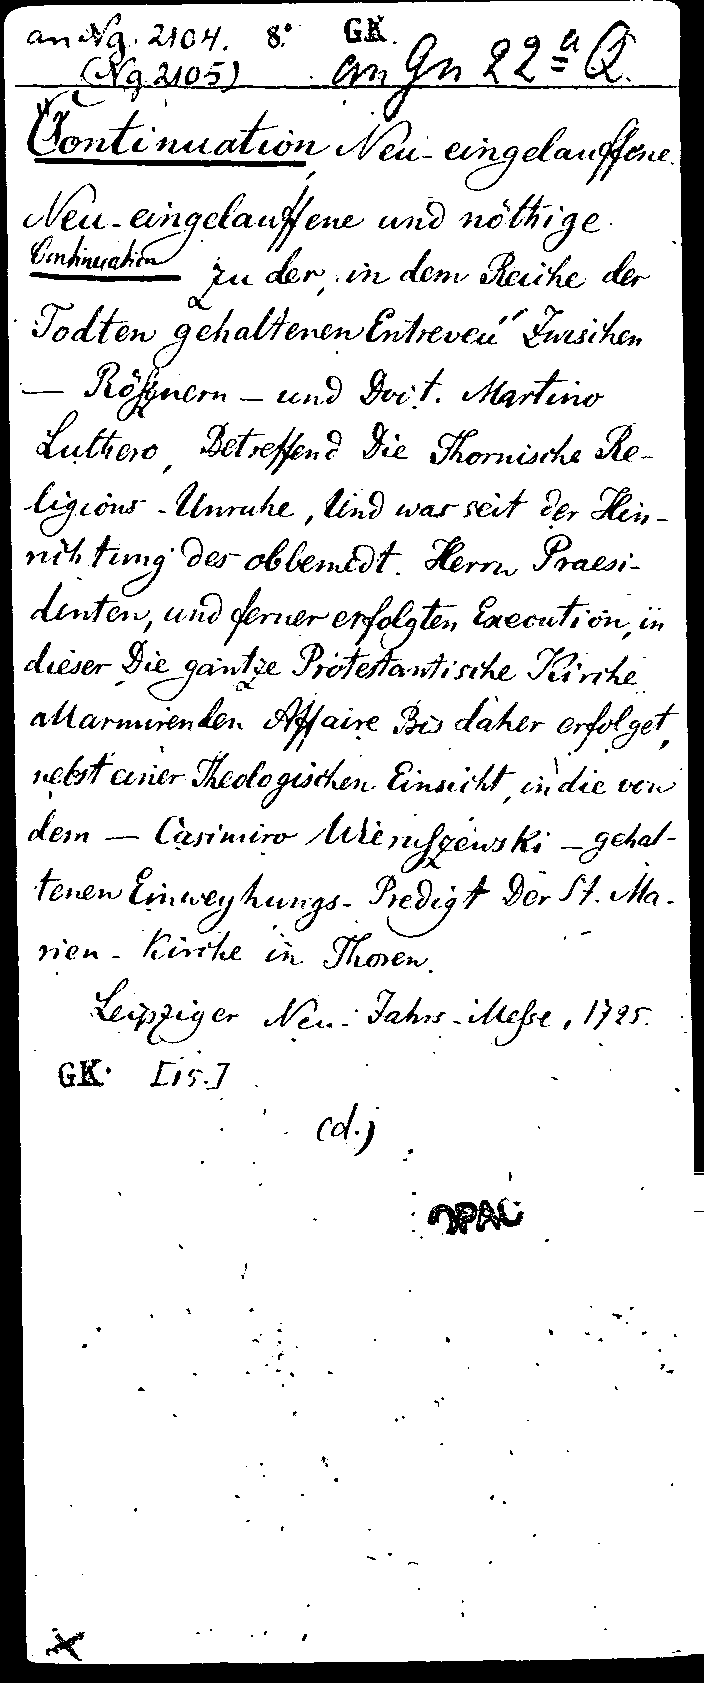 an Ng. 2104. 8.° GK.
(Ng 2105) an Gn 22 a Q.
Continuation, Neu-eingelauffene.
Neu-eingelauffene und nöthige
Continuation zu der, in dem Reiche der
Todten gehaltenen Entreveü Zwischen
— Rößnern — und Doct. Martino
Luthero, Betreffend Die Thornische Re-
ligions-Unruhe, Und was seit der Hin-
richtung des obbemeldt. Herrn Praesi-
denten, und ferner erfolgten Execution, in
dieser Die gantze Protestantische Kirche
allarmirenden Affaire Bis daher erfolget,
nebst einer Theologischen Einsicht, in die von
dem — Casimiro Wieruszewski — gehal-
tenen Einweyhungs-Predigt Der St. Ma-
rien-Kirche in Thoren.
Leipziger Neu-Jahrs-Messe, 1725.
GK. [15.]
(d.)
OPAC